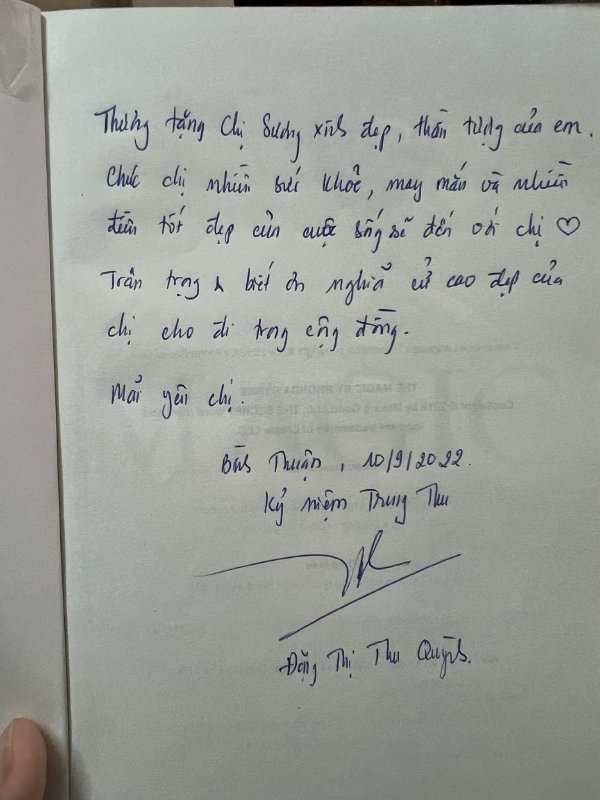 Thương tặng Chị Sương xinh đẹp, thần tượng của em.
Chúc chị nhiều sức khoẻ, may mắn và nhiều
điều tốt đẹp của cuộc sống sẽ đến với chị ♡
Trân trọng & biết ơn nghĩa cử cao đẹp của
chị cho đi trong cộng đồng.
Mãi yêu chị.
Bình Thuận, 10/9/2022.
Kỷ niệm Trung Thu
Đặng Thị Thu Quỳnh.